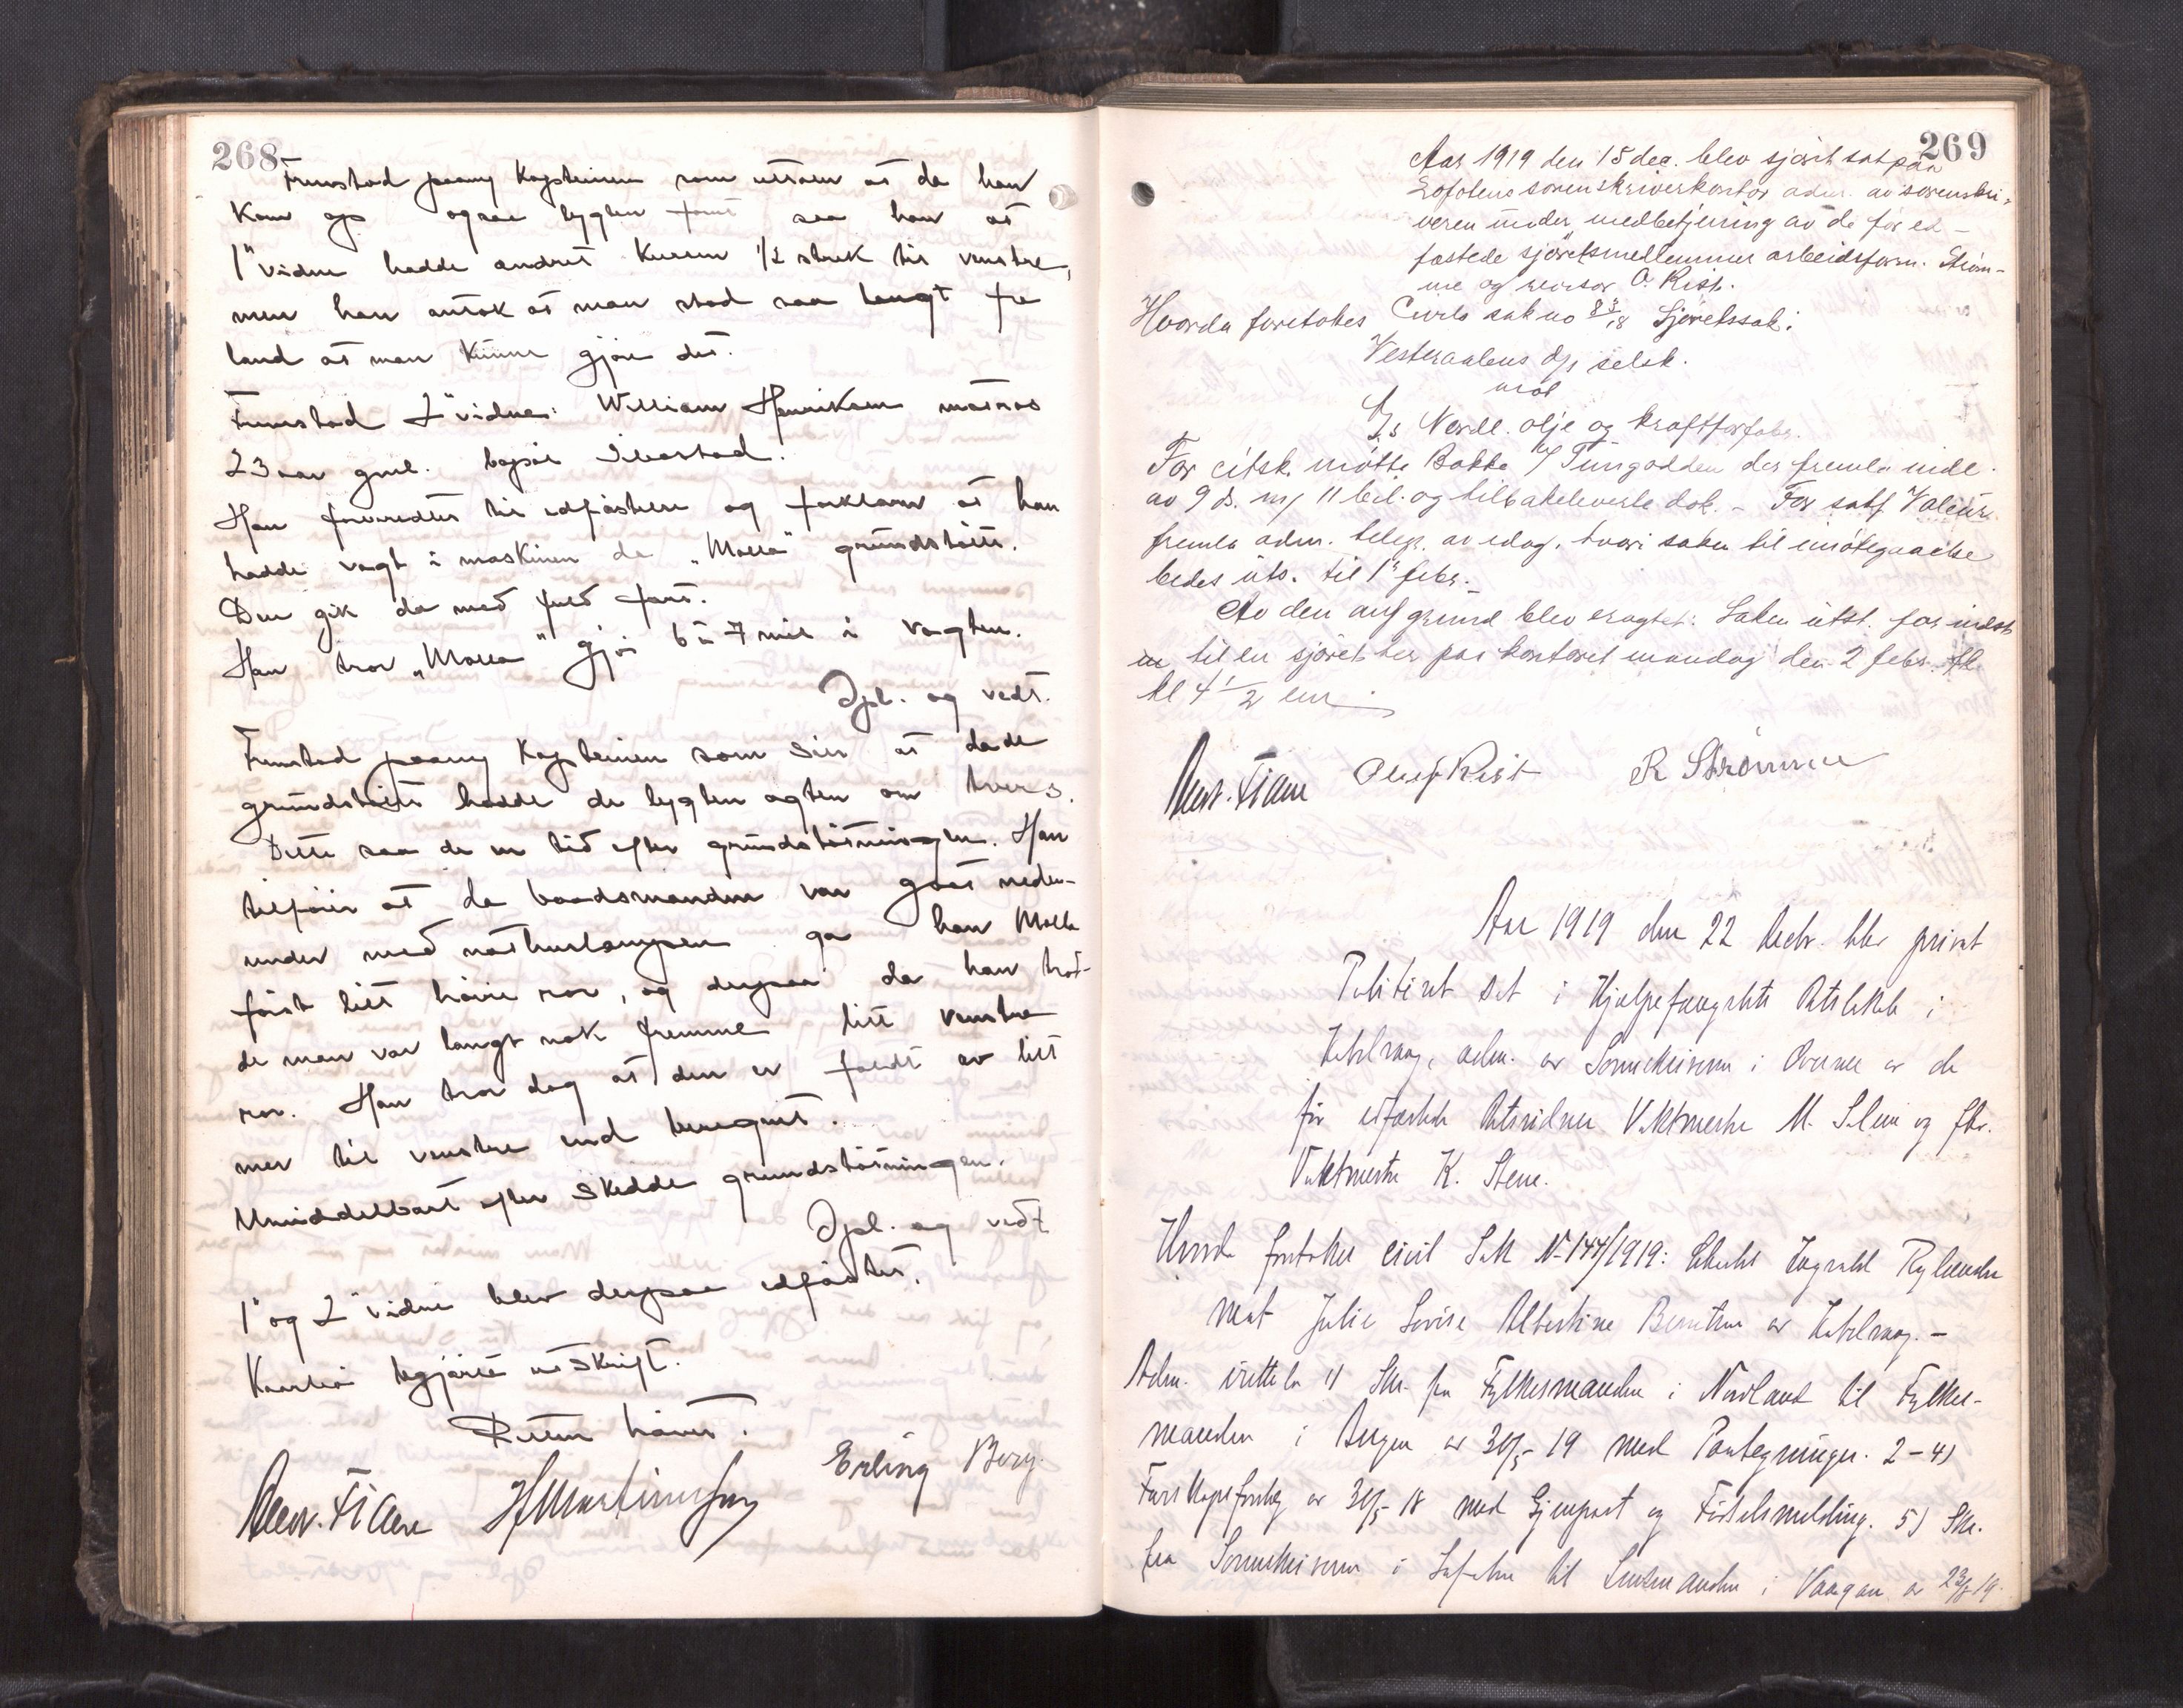 268
Fremstod paany Kapteinen som uttaler at da han
kom op ogsaa lygten fandt saa han at
1ste vidne hadde andret kursen 1/2 strek til venstre,
men han antok at man stod saa langt fra
land at man kunne gjøre det.
Fremstod 2det vidne: William Henriksen matros
23 aar gml. bopæl Ibestad.
Han foreredtes til edfæstelse og forklarer at han
hadde vagt i maskinen da "Molla" grundstøtte.
Den gik da med fuld fart.
Han tror "Molla" gjør 6 à 7 mil i vagten.
Opl. og vedt.
Fremstod paany Kapteinen som sier at da de
grundstøtte hadde de lygten agten om tvers.
Dette saa de en tid efter grundstøtningen. Han
tilføier at da baadsmanden var gaat neden-
under med nathuslampen ga han Molla
først litt høire ror, og derpaa da han trod-
de man var langt nok fremme litt venstre
ror. Han tror dog at den er faldt av litt
mer til venstre end beregnet.
Umiddelbart efter skedde grundstøtningen.
Opl. og vedt
1ste og 2det vidne blev derpaa edfæstet.
begjærte utskrift.
Retten hævet.
Erling Berg
H Martinussen
269
Aar 1919 den 15 dec. blev sjøret sat paa
Lofotens sorenskriverkontor adm. av sorenskri-
veren under medbetjening av de før ed-
fæstede sjøretsmedlemmer arbeidsform. Strøm-
me og revisor O. Rist.
Hvorda foretokes Civil sak no 83/18 Sjøretssak:
Vesteraalens d/s selsk.
mot
A/s Nordl. olje og kraftforfabr.
For citsk. møtte Bakke f/ Tungodden der fremla indl.
av 9 ds. m/ 11 bil. og tilbakeleverte dok. - For saks. Valeur
fremla adm. telegr. av idag, hvori saken til imøtegaaelse
bedes uts. til 1ste febr.
Av den anf grund blev eragtet: Saken utst. for indst
til en sjøret her paa kontoret mandag den 2 febr.
kl 4 1/2 em
Olaf Rist R Strømme
Aar 1919 den 22 Decbr. blev privat
Politiret sat i Hjælpefængslets Retslokale i
Kabelvaag, adm. av Sorenskriveren i Overvær av de
før edfæstede Retsvidner Vaktmester M. Solem og fhv.
Vaktmester K. Stene.
Hvorda foretokes civil Sak No 144/1919:
mot Julie Lovise Albertine Berntsen av Kabelvaag. -
Adm. fremla 1) Skr. fra Fylkesmanden i Nordland til Fylkes-
manden i Bergen av 30/5 - 19 med Paategninger. 2-4)
Farskapsforelæg av 30/5 18 med Gjenpart og Fødselsmelding. 5) Skr.
fra Sorenskriveren i Lofoten til Lensmanden i Vaagan av 23/8 19.